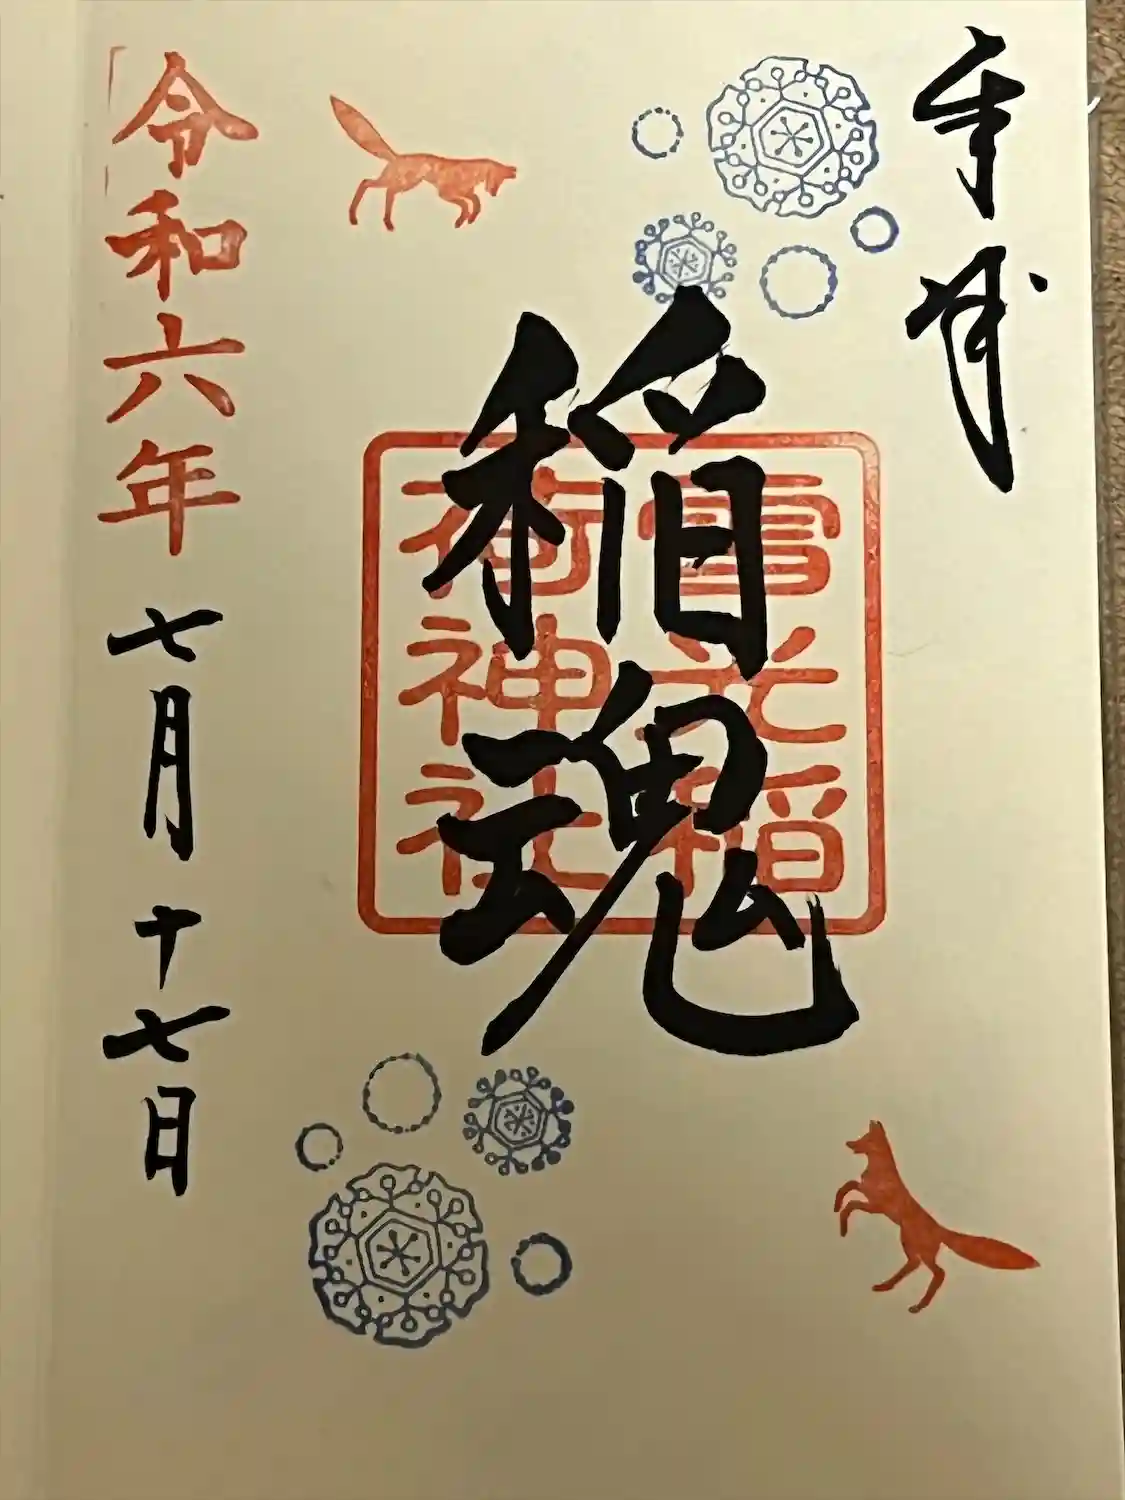 奉拝
稲魂
雪光稲
荷神社
令和六年七月十七日